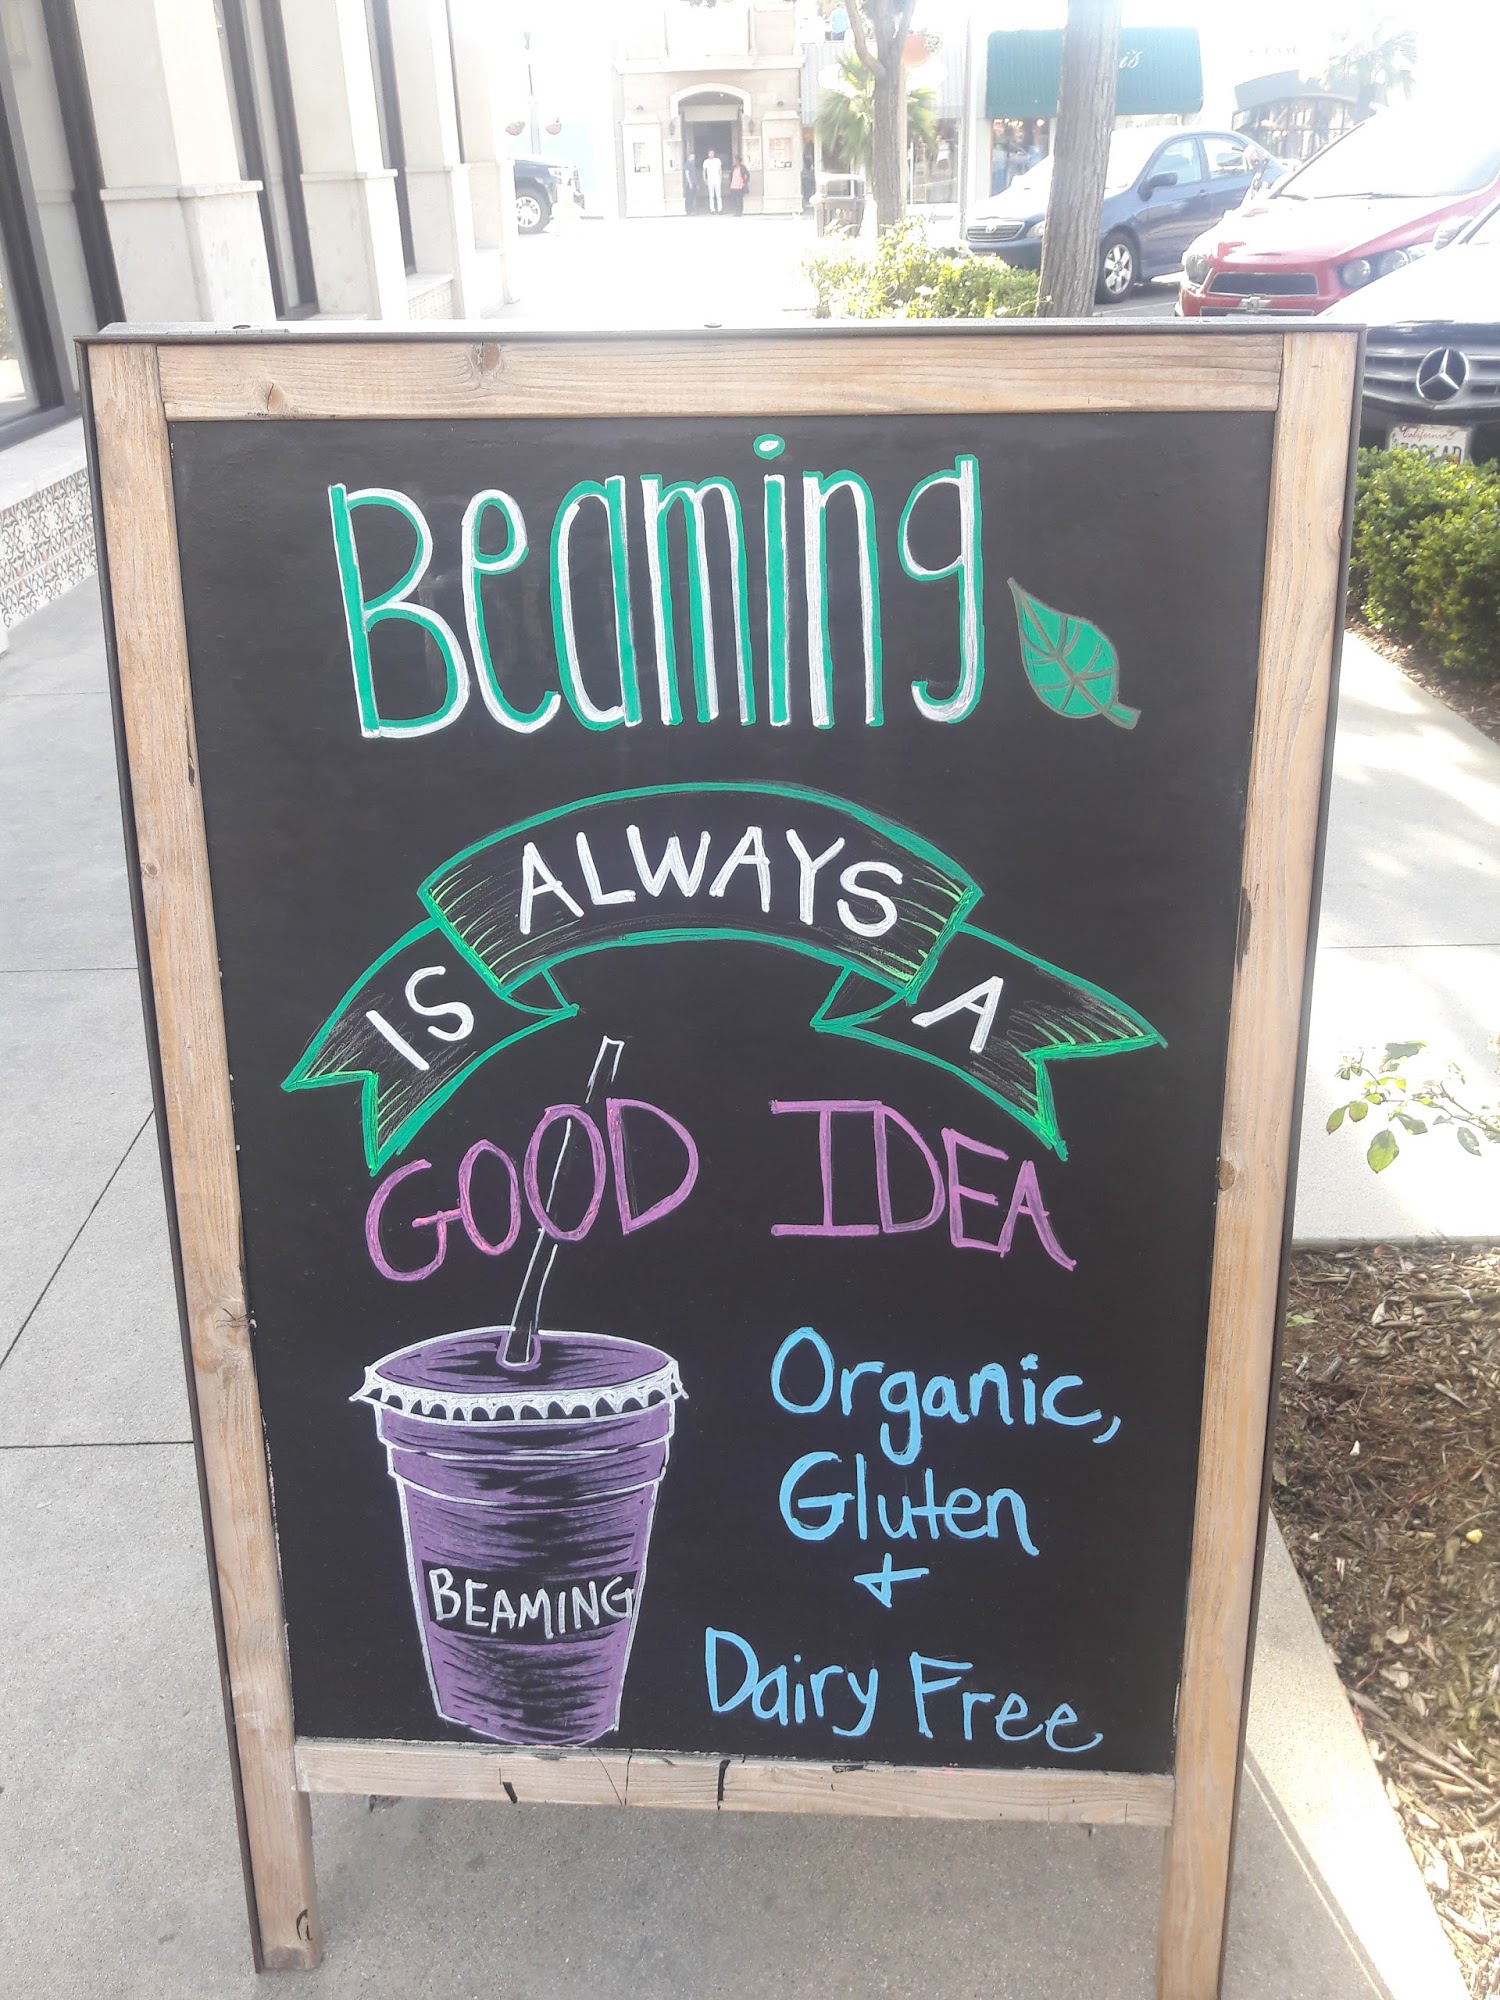 Beaming
IS ALWAYS A
GOOD IDEA
BEAMING
Organic,
Gluten
+
Dairy Free
California